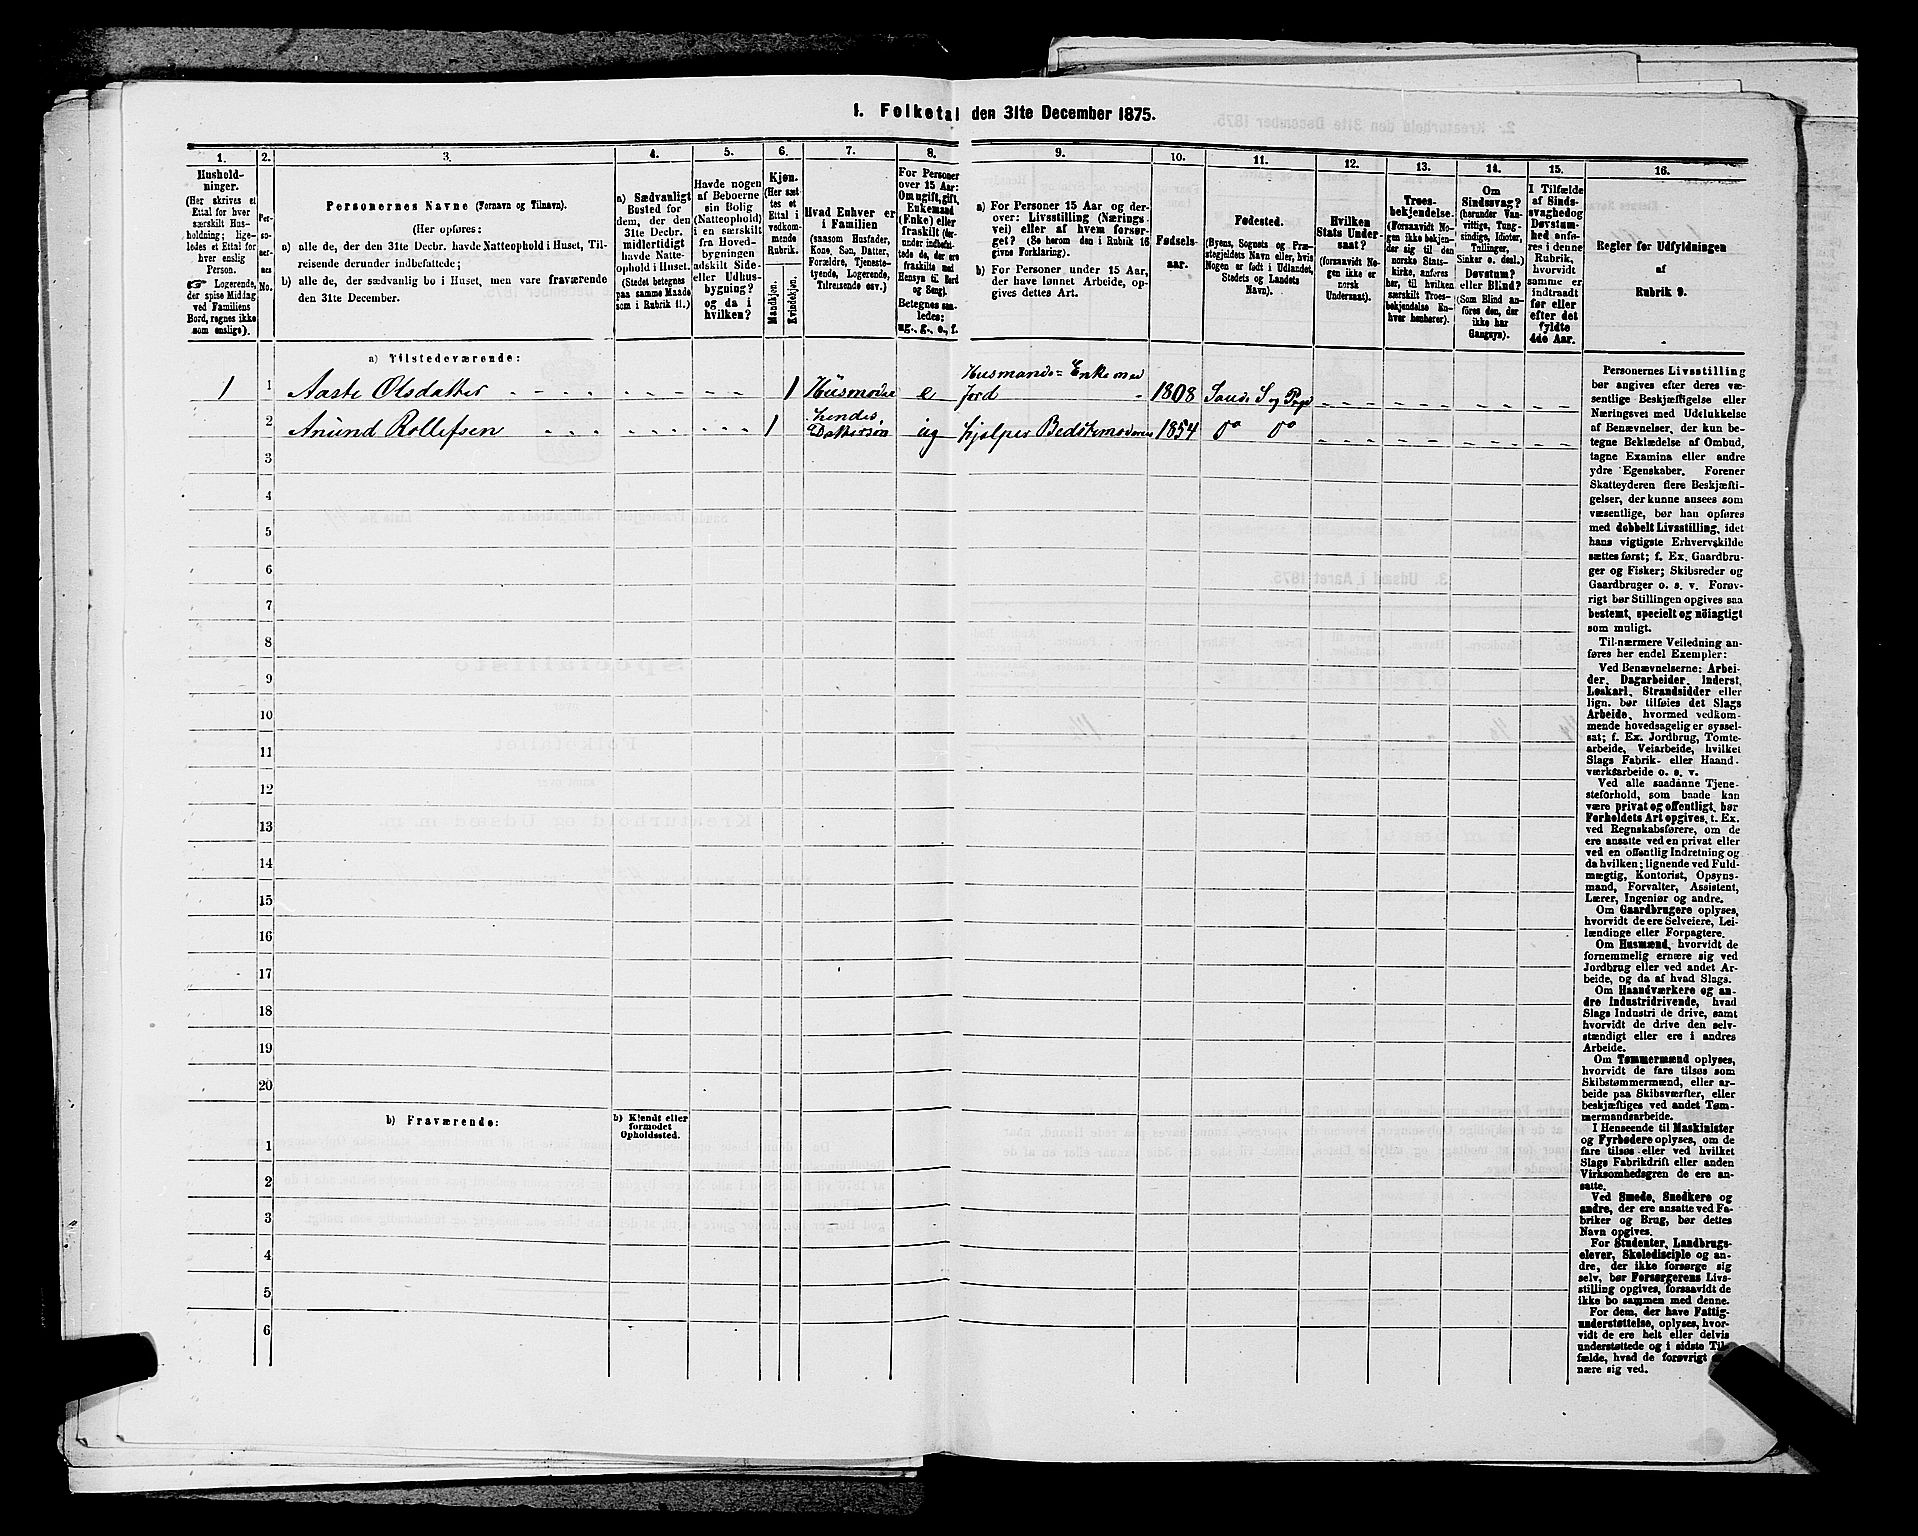 1. Folketal den 31te December 1875.
1.
2.
3.
4.
5.
6.
7.
8.
9.
10.
11.
12.
13.
14.
15.
16.
Hushold-
ninger.
(Her skrives et
Ettal for hver
særskilt Hus-
holdning; lige-
ledes et Ettal for
hver enslig
Person.
☞ Logerende,
der spise Middag
ved Familiens
Bord, regnes ikke
som enslige).
Per-
so-
ner-
nes
No.
Personernes Navne (Fornavn og Tilnavn).
(Her opføres:
a) alle de, der den 31te Decbr. havde Natteophold i Huset, Til-
reisende derunder indbefattede;
b) alle de, der sædvanlig bo i Huset, men vare fraværende
den 31te December.
a) Sædvanligt
Bosted for
dem, der den
31te Decbr.
midlertidigt
havde Natte-
ophold i Huset.
(Stedet betegnes
paa samme Maade
som i Rubrik 11.)
Havde nogen
af Beboerne
sin Bolig
(Natteophold)
i en særskilt
fra Hoved-
bygningen
adskilt Side-
eller Udhus-
bygning?
og da i
hvilken?
Kjøn.
(Her sæt-
tes et
Ettal i
vedkom-
mende
Rubrik.
Mandkjøn.
Kvindekjøn.
Hvad Enhver er
i Familien
(saasom Husfader,
Kone, Søn, Datter,
Forældre, Tjeneste-
tyende, Logerende,
Tilreisende osv.)
For Personer
over 15 Aar:
Om ugift, gift,
Enkemand
(Enke) eller
fraskilt (der-
under indbefat-
tede de, der ere
fraskilte med
Hensyn til Bord
og Seng).
Betegnes saa-
ledes:
ug., g., e., f.
a) For Personer 15 Aar og der-
over: Livsstilling (Nærings-
vei) eller af hvem forsør-
get? (Se herom den i Rubrik 16
givne Forklaring).
b) For Personer under 15 Aar,
der have lønnet Arbeide, op-
gives dettes Art.
Fødsels-
aar.
Fødested.
(Byens, Sognets og Præ-
stegjeldets Navn eller, hvis
Nogen er født i Udlandet,
Stedets og Landets
Navn).
Hvilken
Stats Under-
saat?
(forsaavidt No-
gen ikke er
norsk
Undersaat).
Troes-
bekjendelse.
(Forsaavidt No-
gen ikke bekjen-
der sig til den
norske Stats-
kirke, anføres
her, til hvilken
særskilt Troes-
bekjendelse En-
hver henhører).
Om
Sindssvag?
(herunder Van-
vittige, Tung-
sindige, Idioter,
Tullinger,
Sinker o. desl.)
Døvstum?
eller Blind?
(Som Blind an-
føres den, der
ikke har
Gangsyn).
I Tilfælde
af Sinds-
svaghed og
Døvstum-
hed anfø-
res i denne
Rubrik,
hvorvidt
samme er
indtraadt
før eller
efter det
fyldte
4de Aar.
Regler for Udfyldningen
af
Rubrik 9.
a) Tilstedeværende:
1 1 Aaste Olsdatter 1 Husmoder e Husmands= Enke med
Jord 1808 Saude S og Pgj
2 Anund Rollefsen 1 hendes
Dattersøn ug hjelper Bedstemoderen 1854 Do Do
3
4
5
6
7
8
9
10
11
12
13
14
15
16
17
18
19
20
b) Fraværende:
b) Kjendt eller
formodet
Opholdssted.
1
2
3
4
5
6
Personernes Livsstilling
bør angives efter deres væ-
sentlige Beskjæftigelse eller
Næringsvei med Udelukkelse
af Benævnelser, der kun be-
tegne Beklædelse af Ombud,
tagne Examina eller andre
ydre Egenskaber. Forener
Skatteyderen flere Beskjæfti-
gelser, der kunne ansees som
væsentlige, bør han opføres
med dobbelt Livsstilling, idet
hans vigtigste Erhvervskilde
sættes først; f. Ex. Gaardbru-
ger og Fisker; Skibsreder og
Gaardbruger o. s. v. Forøv-
rigt bør Stillingen opgives saa
bestemt, specielt og nöiagtigt
som muligt.
Til nærmere Veiledning an-
føres her endel Exempler:
Ved Benævnelserne: Arbei-
der, Dagarbeider, Inderst,
Løskarl, Strandsidder eller
lign. bør tilføies det Slags
Arbeide, hvormed vedkom-
mende hovedsagelig er syssel-
sat; f. Ex. Jordbrug, Tomte-
arbeide, Veiarbeide, hvilket
Slags Fabrik- eller Haand-
værksarbeide o. s. v.
Ved alle saadanne Tjene-
steforhold, som baade kan
være privat og offentligt, bør
Forholdets Art opgives, t. Ex.
ved Regnskabsførere, om de
ere ansatte ved en privat eller
ved en offentlig Indretning og
da hvilken; lignende ved Fuld-
mægtig, Kontorist, Opsyns-
mand, Forvalter, Assistent,
Lærer, Ingeniør og andre.
Om Gaardbrugere oplyses,
hvorvidt de ere Selveiere, Lei-
lændinge eller Forpagtere.
Om Husmænd, hvorvidt de
fornemmelig ernære sig ved
Jordbrug eller ved andet Ar-
beide, og da af hvad Slags.
Om Haandværkere og an-
dre Industridrivende, hvad
Slags Industri de drive, samt
hvorvidt de drive den selv-
stændigt eller ere i andres
Arbeide.
Om Tømmermænd oplyses,
hvorvidt de fare tilsøs som
Skibstømmermænd, eller ar-
beide paa Skibsværfter, eller
beskjæftiges ved andet Tøm-
mermandsarbeide.
I Henseende til Maskinister
og Fyrbødere oplyses, om de
fare tilsøs eller ved hvilket
Slags Fabrikdrift eller anden
Virksomhedsgren de ere an-
satte.
Ved Smede, Snedkere og
andre, der ere ansatte ved Fa-
briker og Brug, bør dettes
Navn opgives.
For Studenter, Landbrugs-
elever, Skoledisciple og an-
dre, der ikke forsørge sig
selv, bør Forsørgerens Livs-
stilling opgives, forsaavidt de
ikke bo sammen med denne.
For dem, der have Fattig-
understøttelse, oplyses, hvor-
vidt de ere helt eller delvis
understøttede og i sidste Til-
fælde, hvad de forøvrigt
nære sig ved.